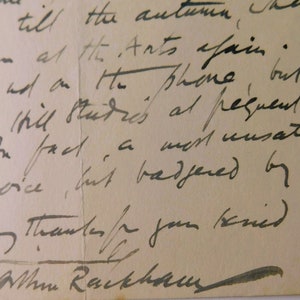 till the autumn,
at the Arts again.
on the phone, but
Hill Studios at frequent
fact, a most unsat
but badgered by
thanks for your kind
Arthur Rackham